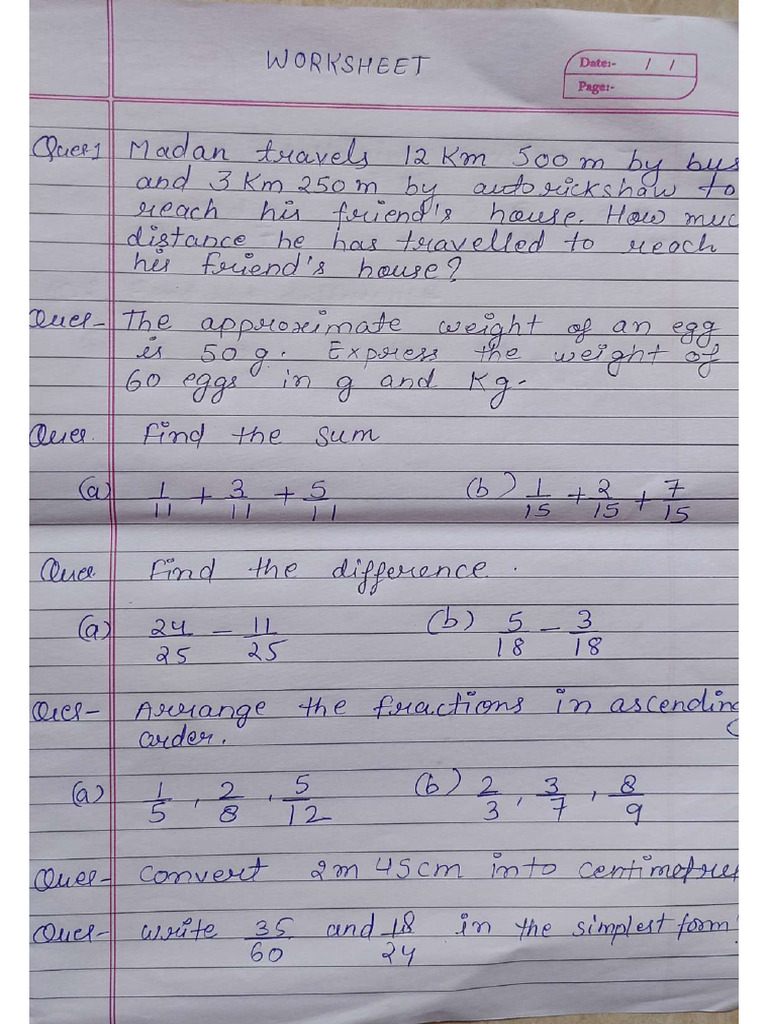 WORKSHEET
Date:- / /
Page:-
Ques1 Madan travels 12 Km 500 m by bus
and 3 Km 250 m by autorickshaw to
reach his friend's house. How muc
distance he has travelled to reach
his friend's house?
Ques- The approximate weight of an egg
is 50 g. Express the weight of
60 eggs in g and Kg.
Ques. Find the sum
(a) 1/11 + 3/11 + 5/11 (b) 1/15 + 2/15 + 7/15
Ques. Find the difference.
(a) 24/25 - 11/25 (b) 5/18 - 3/18
Ques- Arrange the fractions in ascending
order.
(a) 1/5, 2/8, 5/12 (b) 2/3, 3/7, 8/9
Ques- Convert 2m 45cm into centimetres
Ques- Write 35/60 and 18/24 in the simplest form.